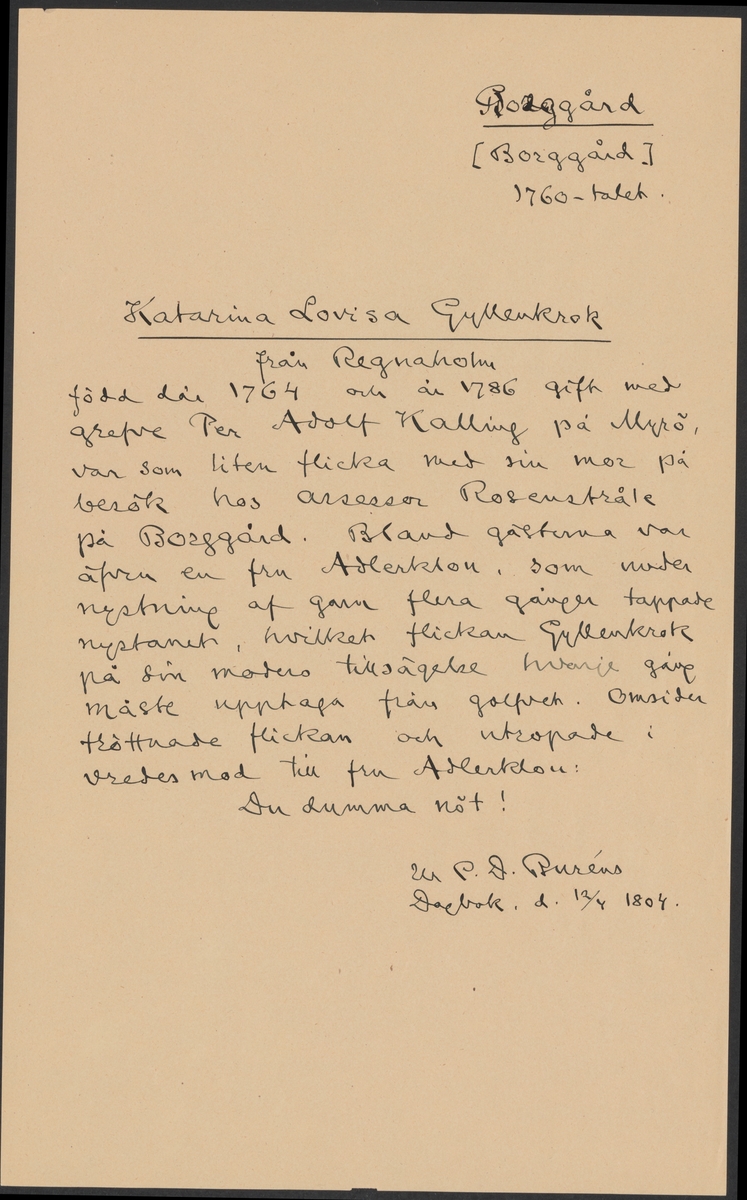 Borggård
[Borggård]
1760-talet.
Katarina Lovisa Gyllenkrok
från Regnaholm
född där 1764 och år 1786 gift med
grefve Per Adolf Kalling på Myrö,
var som liten flicka med sin mor på
besök hos assessor Rosenstråle
på Borggård. Bland gästerna var
äfven en fru Adlerklou, som under
nystning af garn flera gånger tappade
nystanet, hvilket flickan Gyllenkrok
på sin moders tillsägelse hvarje gång
måste upptaga från golfvet. Omsider
tröttnade flickan och utropade i
vredesmod till fru Adlerklou:
Du dumma nöt!
Ur P. D. Buréns
Dagbok, d. 12/4 1804.